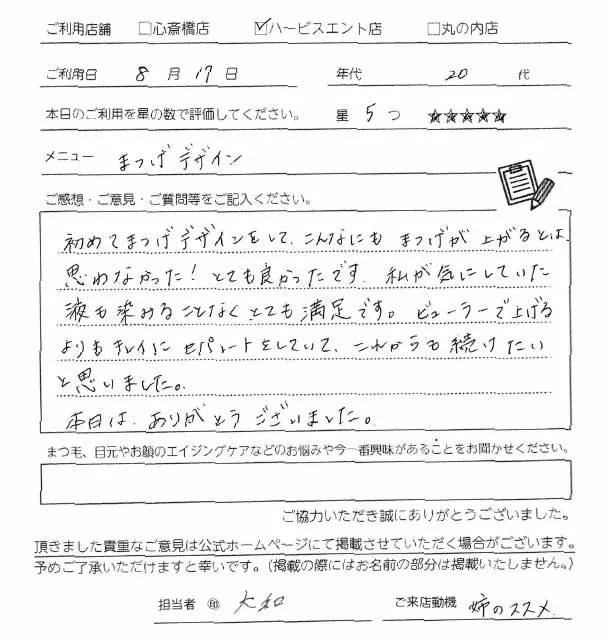 ご利用店舗 □心斎橋店 ☑ハービスエント店 □丸の内店
ご利用日 8月17日 年代 20代
本日のご利用を星の数で評価してください。 星 5つ ★★★★★
メニュー まつげデザイン
ご感想・ご意見・ご質問等をご記入ください。
初めてまつげデザインをして、こんなにも まつげが上がるとは
思わなかった!とても良かったです。私が気にしていた
液も染みることなくとても満足です。ビューラーで上げる
よりもキレイにセパレートをしていて、これからも続けたい
と思いました。
本日は、ありがとうございました。
まつ毛、目元やお顔のエイジングケアなどのお悩みや今一番興味があることをお聞かせください。
ご協力いただき誠にありがとうございました。
頂きました貴重なご意見は公式ホームページにて掲載させていただく場合がございます。
予めご了承いただけますと幸いです。(掲載の際にはお名前の部分は掲載いたしません。)
担当者 ㊞ 大和 ご来店動機 姉のススメ